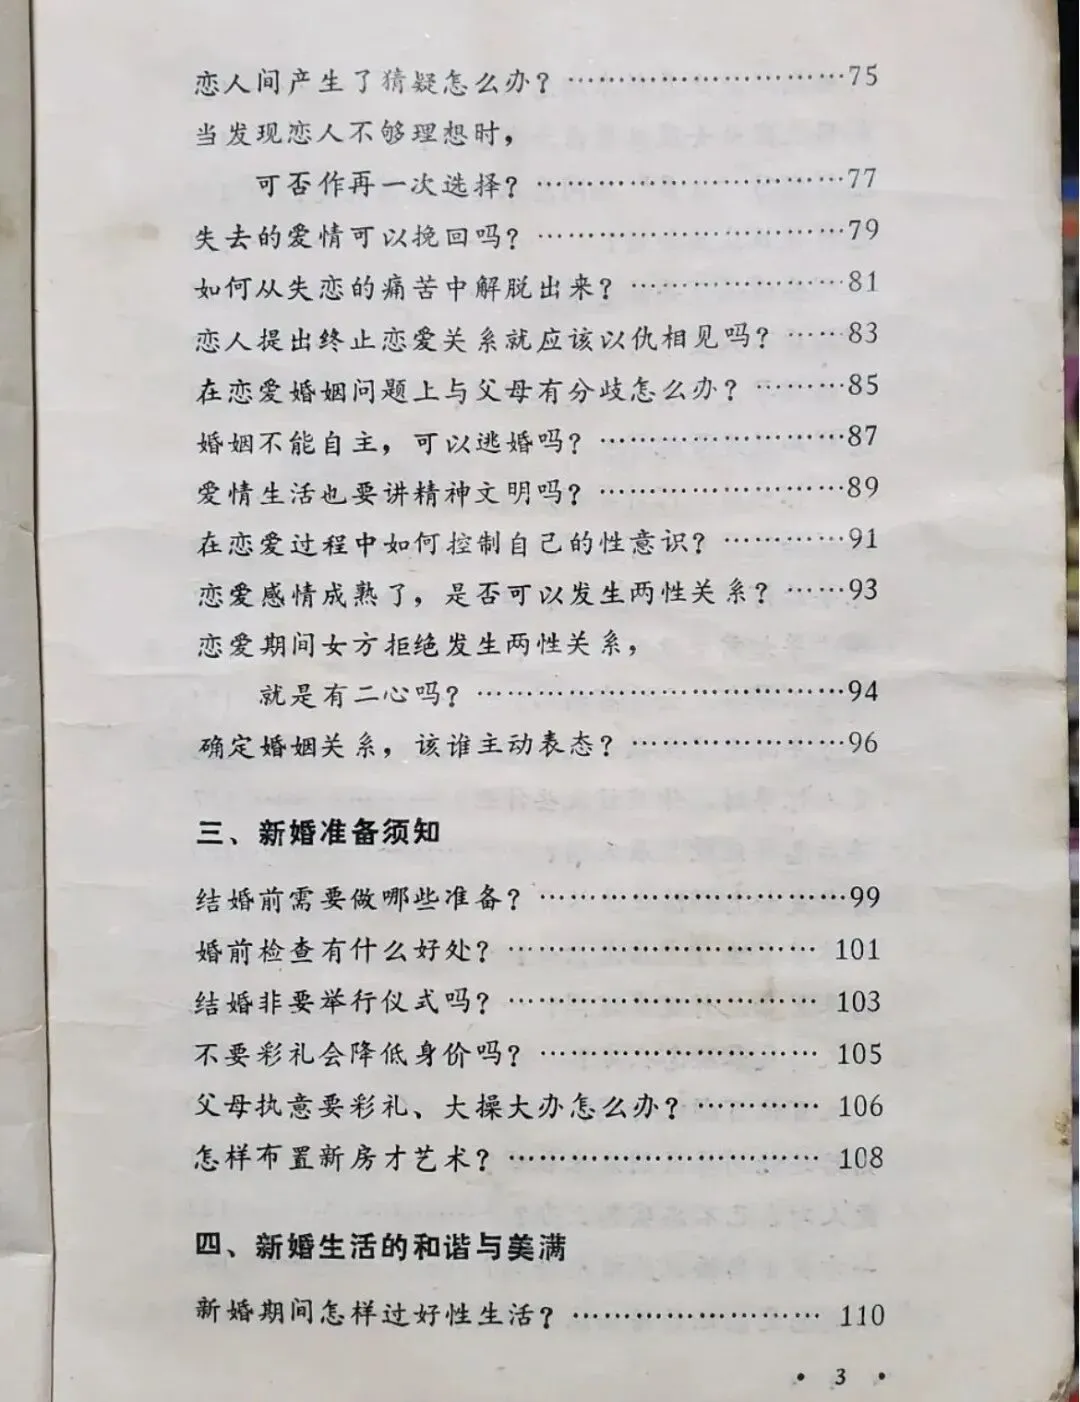 恋人间产生了猜疑怎么办？…………………………75
当发现恋人不够理想时，
可否作再一次选择？……………………………77
失去的爱情可以挽回吗？……………………………79
如何从失恋的痛苦中解脱出来？……………………81
恋人提出终止恋爱关系就应该以仇相见吗？……83
在恋爱婚姻问题上与父母有分歧怎么办？………85
婚姻不能自主，可以逃婚吗？………………………87
爱情生活也要讲精神文明吗？………………………89
在恋爱过程中如何控制自己的性意识？…………91
恋爱感情成熟了，是否可以发生两性关系？……93
恋爱期间女方拒绝发生两性关系，
就是有二心吗？…………………………………94
确定婚姻关系，该谁主动表态？……………………96
三、新婚准备须知
结婚前需要做哪些准备？……………………………99
婚前检查有什么好处？…………………………… 101
结婚非要举行仪式吗？…………………………… 103
不要彩礼会降低身价吗？………………………… 105
父母执意要彩礼、大操大办怎么办？………… 106
怎样布置新房才艺术？…………………………… 108
四、新婚生活的和谐与美满
新婚期间怎样过好性生活？……………………… 110
• 3 •